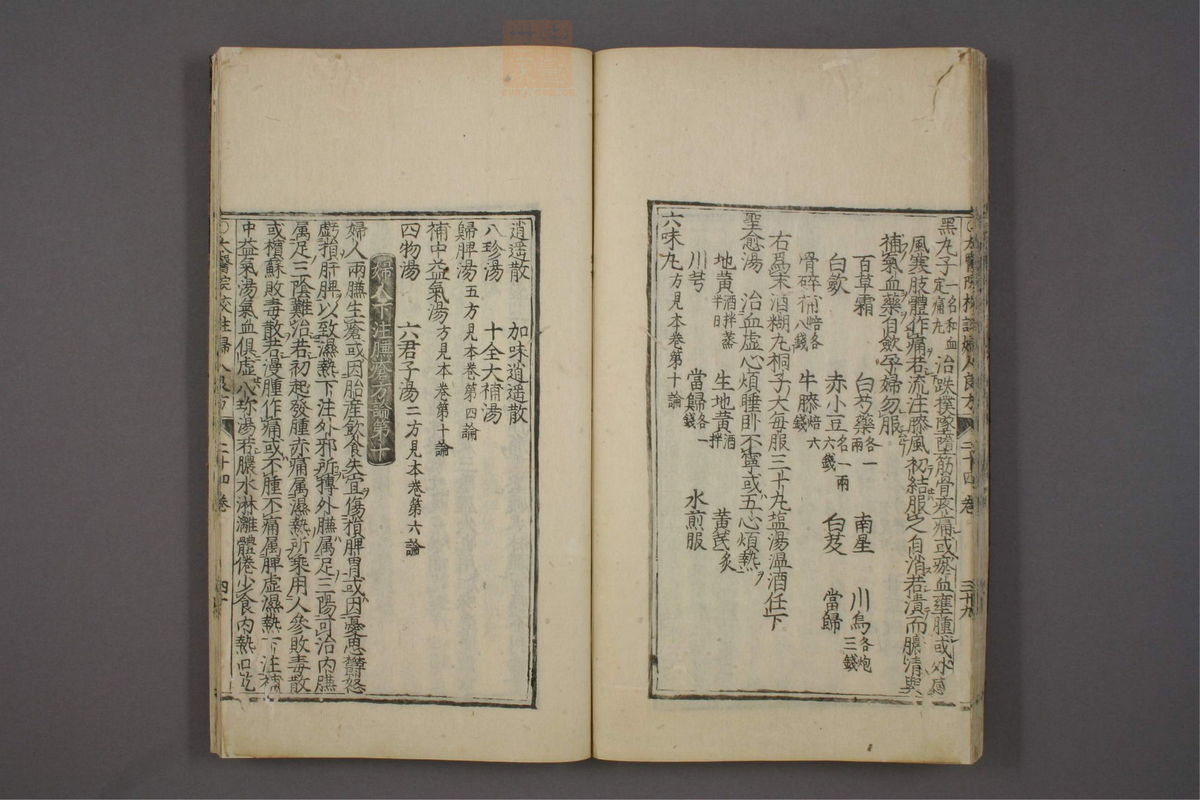 ○太醫院校註婦人良方 二十四卷 三十九
黑丸子一名和血定痛丸 治跌撲墜墮筋骨疼痛或瘀血壅腫或外感
風寒肢體作痛若流注膝風初結服之自消若潰而膿清與
補氣血藥自斂孕婦勿服
百草霜 白芍藥各一兩 南星 川烏各炮三錢
白歛 赤小豆各一兩六錢 白芨 當歸
骨碎補焙各八錢 牛膝焙六
右爲末酒糊丸桐子大每服三十丸塩湯温酒任下
聖愈湯 治血虛心煩睡卧不寧或五心煩熱
地黃酒拌蒸半日 生地黃酒拌 黃芪炙
川芎 當歸各一錢 水煎服
六味丸方見本卷第十論
逍遥散 加味逍遥散
八珍湯 十全大補湯
歸脾湯五方見本卷第四論
補中益氣湯方見本卷第十論
四物湯 六君子湯二方見本卷第六論
婦人下注臁瘡方論第十
婦人兩臁生瘡或因胎産飲食失宜傷損脾胃或因憂思鬱怒
虧損肝脾以致濕熱下注外邪所搏外臁属足三陽可治内臁
属足三陰難治若初起發腫赤痛属濕熱所乘用人參敗毒散
或檳蘇敗毒散若漫腫作痛或不腫不痛属脾虛濕熱下注補
中益氣湯氣血俱虛八珍湯若膿水淋灕體倦少食内熱口乾
○太醫院校註婦人良方 二十四卷 四十